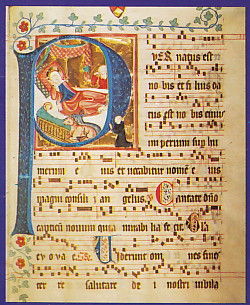 PUER natus est
no bis et fi lius da
tus est no bis cuius
im perium sup hu
merum e ius et vocabitur nomē e ius
magni consilij an gelus Cantate dño
canticū novum quia mirabi lia fe cit Gla
e v o v a e Viderunt om nes fines
ter re salutare de i nostri iubila